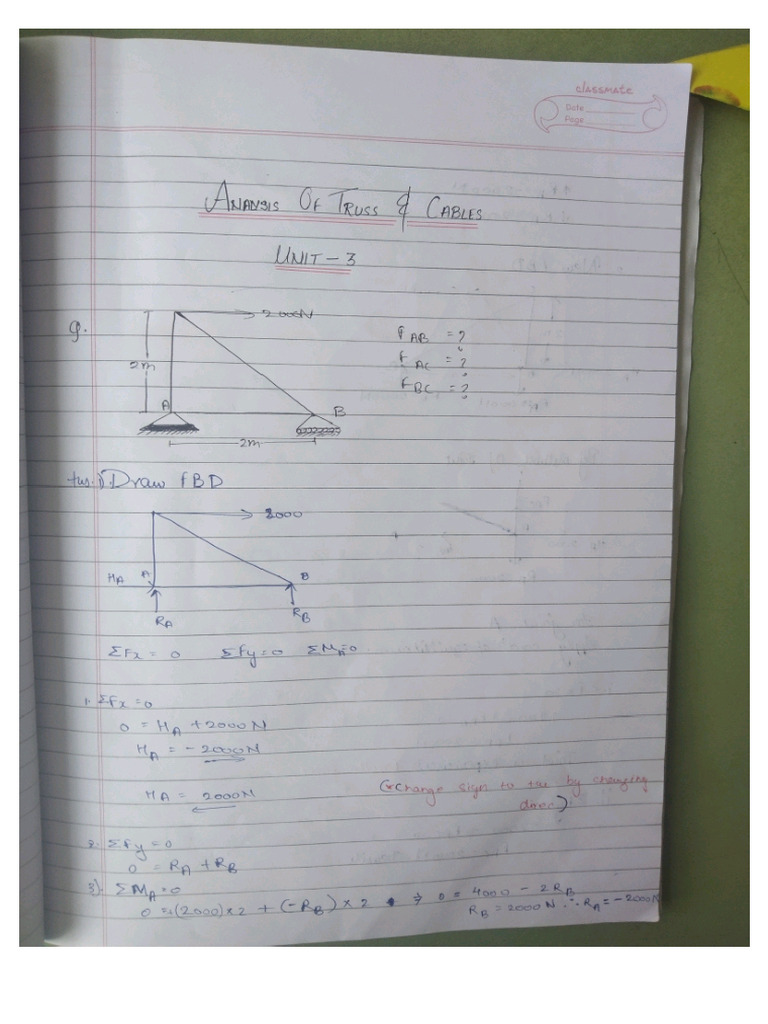 classmate
Date
Page
ANANSIS OF TRUSS & CABLES
UNIT-3
Q.
2000N
2m
A
B
2m
F AB = ?
F AC = ?
F BC = ?
Ans. 1) Draw FBD
2000
HA A B
RA RB
ΣFx = 0 ΣFy = 0 ΣMA = 0
1. ΣFx = 0
0 = HA + 2000N
HA = - 2000N
HA = 2000N
(*Change sign to +ve by changing
direc)
2. ΣFy = 0
0 = RA + RB
3) ΣMA = 0
0 = +(2000) x 2 + (-RB) x 2 ⇒ 0 = 4000 - 2RB
RB = 2000 N ∴ RA = -2000N